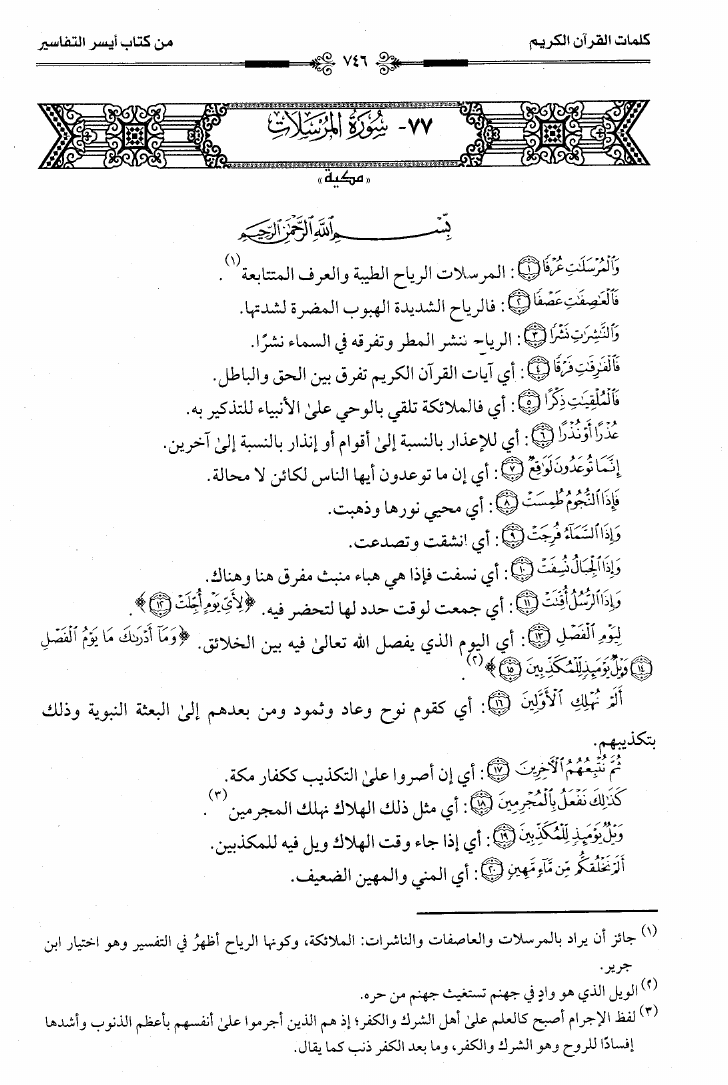 كلمات القرآن الكريم
٧٤٦
من كتاب أيسر التفاسير
٧٧- سُورَةُ المُرْسَلَات
«مكية»
بِسْمِ اللَّهِ الرَّحْمَٰنِ الرَّحِيمِ
وَالْمُرْسَلَاتِ عُرْفًا ﴿١﴾: المرسلات الرياح الطيبة والعرف المتتابعة(١).
فَالْعَاصِفَاتِ عَصْفًا ﴿٢﴾: فالرياح الشديدة الهبوب المضرة لشدتها.
وَالنَّاشِرَاتِ نَشْرًا ﴿٣﴾: الرياح ننشر المطر وتفرقه في السماء نشرًا.
فَالْفَارِقَاتِ فَرْقًا ﴿٤﴾: أي آيات القرآن الكريم تفرق بين الحق والباطل.
فَالْمُلْقِيَاتِ ذِكْرًا ﴿٥﴾: أي فالملائكة تلقي بالوحي علىٰ الأنبياء للتذكير به.
عُذْرًا أَوْ نُذْرًا ﴿٦﴾: أي للإعذار بالنسبة إلىٰ أقوام أو إنذار بالنسبة إلىٰ آخرين.
إِنَّمَا تُوعَدُونَ لَوَاقِعٌ ﴿٧﴾: أي إن ما توعدون أيها الناس لكائن لا محالة.
فَإِذَا النُّجُومُ طُمِسَتْ ﴿٨﴾: أي محيي نورها وذهبت.
وَإِذَا السَّمَاءُ فُرِجَتْ ﴿٩﴾: أي انشقت وتصدعت.
وَإِذَا الْجِبَالُ نُسِفَتْ ﴿١٠﴾: أي نسفت فإذا هي هباء منبث مفرق هنا وهناك.
وَإِذَا الرُّسُلُ أُقِّتَتْ ﴿١١﴾: أي جمعت لوقت حدد لها لتحضر فيه. ﴿لِأَيِّ يَوْمٍ أُجِّلَتْ ﴿١٢﴾﴾.
لِيَوْمِ الْفَصْلِ ﴿١٣﴾: أي اليوم الذي يفصل الله تعالىٰ فيه بين الخلائق. ﴿وَمَا أَدْرَاكَ مَا يَوْمُ الْفَصْلِ
﴿١٤﴾ وَيْلٌ يَوْمَئِذٍ لِّلْمُكَذِّبِينَ ﴿١٥﴾﴾(٢).
أَلَمْ نُهْلِكِ الْأَوَّلِينَ ﴿١٦﴾: أي كقوم نوح وعاد وثمود ومن بعدهم إلىٰ البعثة النبوية وذلك
بتكذيبهم.
ثُمَّ نُتْبِعُهُمُ الْآخِرِينَ ﴿١٧﴾: أي إن أصروا علىٰ التكذيب ككفار مكة.
كَذَٰلِكَ نَفْعَلُ بِالْمُجْرِمِينَ ﴿١٨﴾: أي مثل ذلك الهلاك نهلك المجرمين(٣).
وَيْلٌ يَوْمَئِذٍ لِّلْمُكَذِّبِينَ ﴿١٩﴾: أي إذا جاء وقت الهلاك ويل فيه للمكذبين.
أَلَمْ نَخْلُقكُّم مِّن مَّاءٍ مَّهِينٍ ﴿٢٠﴾: أي المني والمهين الضعيف.
(١) جائز أن يراد بالمرسلات والعاصفات والناشرات: الملائكة، وكونها الرياح أظهرُ في التفسير وهو اختيار ابن
جرير.
(٢) الويل الذي هو وادٍ في جهنم تستغيث جهنم من حره.
(٣) لفظ الإجرام أصبح كالعلم علىٰ أهل الشرك والكفر؛ إذ هم الذين أجرموا علىٰ أنفسهم بأعظم الذنوب وأشدها
إفسادًا للروح وهو الشرك والكفر، وما بعد الكفر ذنب كما يقال.